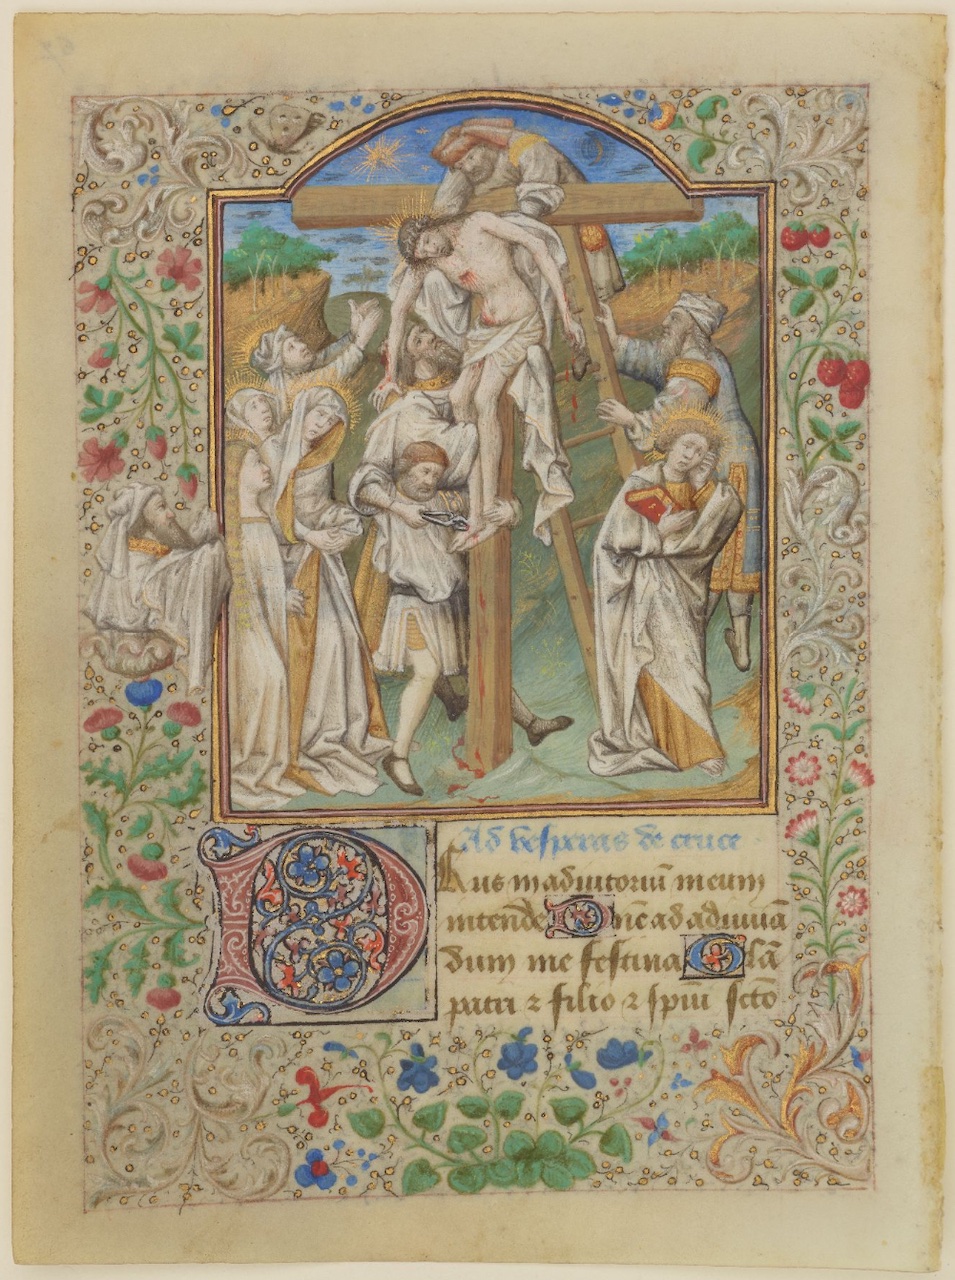 Ad vesperas de cruce
Deus in adiutoriū meum
intende Dñe ad adiuuā
dum me festina Glā
patri ⁊ filio ⁊ spiūi sctō